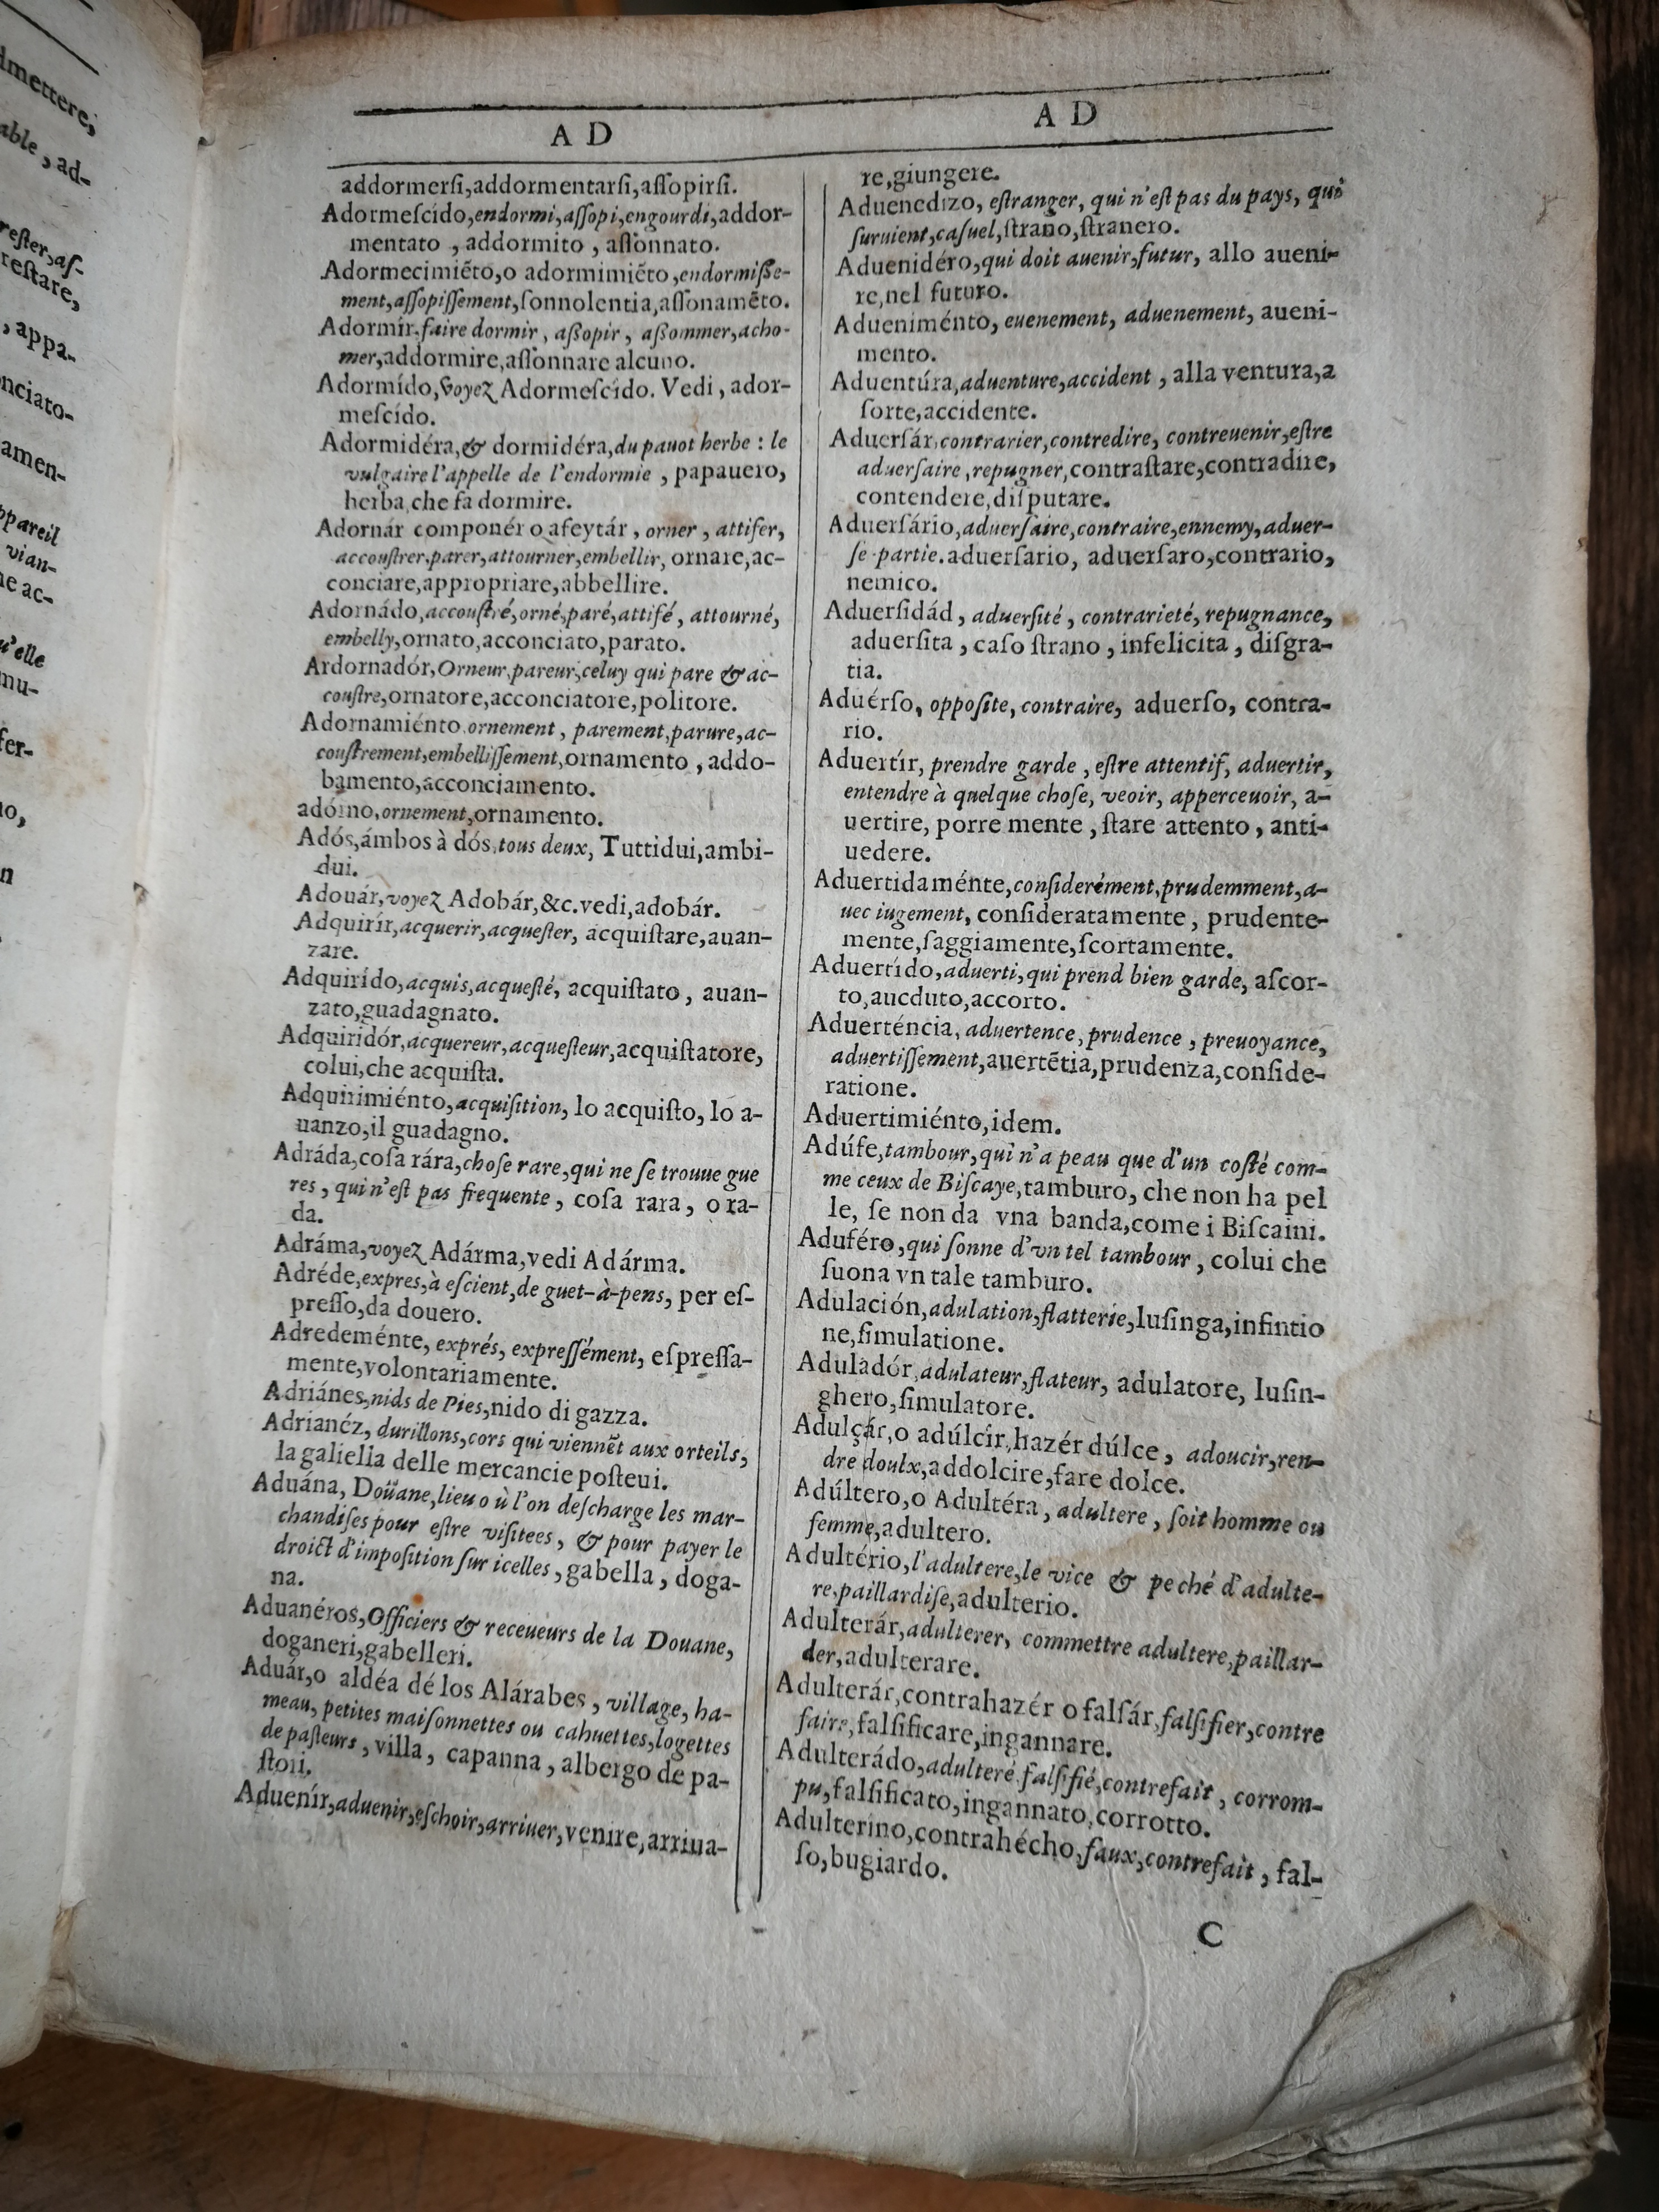 dmettere,
able, ad-
rester, as-
restare,
, appa-
nciato-
amen-
ppareil
vian-
ne ac-
u'elle
mu-
fer-
no,
n
A D
addormerſi,addormentarſi,aſſopirſi.
Adormeſcído,endormi,aſſopi,engourdi,addor-
mentato , addormito , aſſonnato.
Adormecimiẽto,o adormimiẽto,endormiſſe-
ment,aſſopiſſement,ſonnolentia,aſſonamẽto.
Adormír,faire dormir , aſſopir , aſſommer,acho-
mer,addormire,aſſonnare alcuno.
Adormído,voyez Adormeſcído. Vedi , ador-
meſcído.
Adormidéra,& dormidéra,du pauot herbe : le
vulgaire l'appelle de l'endormie , papauero,
herba,che fa dormire.
Adornár componér o afeytár , orner , attifer,
accouſtrer,parer,attourner,embellir, ornare,ac-
conciare,appropriare,abbellire.
Adornádo,accouſtré,orné,paré,attifé , attourné,
embelly,ornato,acconciato,parato.
Ardornadór,Orneur,pareur,celuy qui pare & ac-
couſtre,ornatore,acconciatore,politore.
Adornamiénto,ornement , parement,parure,ac-
couſtrement,embelliſſement,ornamento , addo-
bamento,acconciamento.
adórno,ornement,ornamento.
Adós,ámbos à dós,tous deux, Tuttidui,ambi-
dui.
Adouár,voyez Adobár,&c.vedi,adobár.
Adquirír,acquerir,acqueſter, acquiſtare,auan-
zare.
Adquirído,acquis,acqueſté, acquiſtato , auan-
zato,guadagnato.
Adquiridór,acquereur,acqueſteur,acquiſtatore,
colui,che acquiſta.
Adquirimiénto,acquiſition, lo acquiſto, lo a-
uanzo,il guadagno.
Adráda,coſa rára,choſe rare,qui ne ſe trouue gue
res , qui n'eſt pas frequente , coſa rara , o ra-
da.
Adráma,voyez Adárma,vedi Adárma.
Adréde,expres,à eſcient,de guet-à-pens, per eſ-
preſſo,da douero.
Adredeménte, exprés, expreſſément, eſpreſſa-
mente,volontariamente.
Adriánes,nids de Pies,nido di gazza.
Adrianéz, durillons,cors qui viennẽt aux orteils,
la galiella delle mercancie poſteui.
Aduána, Doüane,lieu o ù l'on deſcharge les mar-
chandiſes pour eſtre viſitees, & pour payer le
droict d'impoſition ſur icelles , gabella , doga-
na.
Aduanéros,Officiers & receueurs de la Douane,
doganeri,gabelleri.
Aduár,o aldéa dé los Alárabes , village, ha-
meau, petites maiſonnettes ou cahuettes,logettes
de paſteurs , villa, capanna , albergo de pa-
ſtori.
Aduenír,aduenir,eſchoir,arriuer,venire,arriua-
A D
re,giungere.
Aduenedizo, eſtranger, qui n'eſt pas du pays, qui
ſuruient,caſuel,ſtrano,ſtranero.
Aduenidéro,qui doit auenir,futur, allo aueni-
re,nel futuro.
Adueniménto, euenement, aduenement, aueni-
mento.
Aduentúra,aduenture,accident , alla ventura,a
ſorte,accidente.
Aduerſár,contrarier,contredire, contreuenir,eſtre
aduerſaire ,repugner,contraſtare,contradire,
contendere,diſputare.
Aduerſário,aduerſaire,contraire,ennemy,aduer-
ſe partie.aduerſario, aduerſaro,contrario,
nemico.
Aduerſidád , aduerſité , contrarieté, repugnance,
aduerſita , caſo ſtrano , infelicita , diſgra-
tia.
Aduérſo, oppoſite, contraire, aduerſo, contra-
rio.
Aduertír, prendre garde , eſtre attentif, aduertir,
entendre à quelque choſe, veoir, apperceuoir, a-
uertire, porre mente , ſtare attento , anti-
uedere.
Aduertidaménte,conſiderément,prudemment,a-
uec iugement, conſideratamente , prudente-
mente,ſaggiamente,ſcortamente.
Aduertído,aduerti,qui prend bien garde, aſcor-
to,aueduto,accorto.
Aduerténcia, aduertence, prudence , preuoyance,
aduertiſſement,auertẽtia,prudenza,conſide-
ratione.
Aduertimiénto,idem.
Adúfe,tambour,qui n'a peau que d'un coſté com-
me ceux de Biſcaye,tamburo, che non ha pel
le, ſe non da vna banda,come i Biſcaini.
Aduféro,qui ſonne d'vn tel tambour , colui che
ſuona vn tale tamburo.
Adulación,adulation,flatterie,luſinga,infintio
ne,ſimulatione.
Aduladór,adulateur,flateur, adulatore, luſin-
ghero,ſimulatore.
Adulçár,o adúlcir,hazér dúlce , adoucir,ren-
dre doulx,addolcire,fare dolce.
Adúltero,o Adultéra , adultere , ſoit homme ou
femme,adultero.
Adultério,l'adultere,le vice & peché d'adulte-
re,paillardiſe,adulterio.
Adulterár,adulterer, commettre adultere,paillar-
der,adulterare.
Adulterár,contrahazér o falſár,falſifier,contre
faire,falſificare,ingannare.
Adulterádo,adulteré falſifié,contrefait , corrom-
pu,falſificato,ingannato,corrotto.
Adulterino,contrahécho,faux,contrefait , fal-
ſo,bugiardo.
C